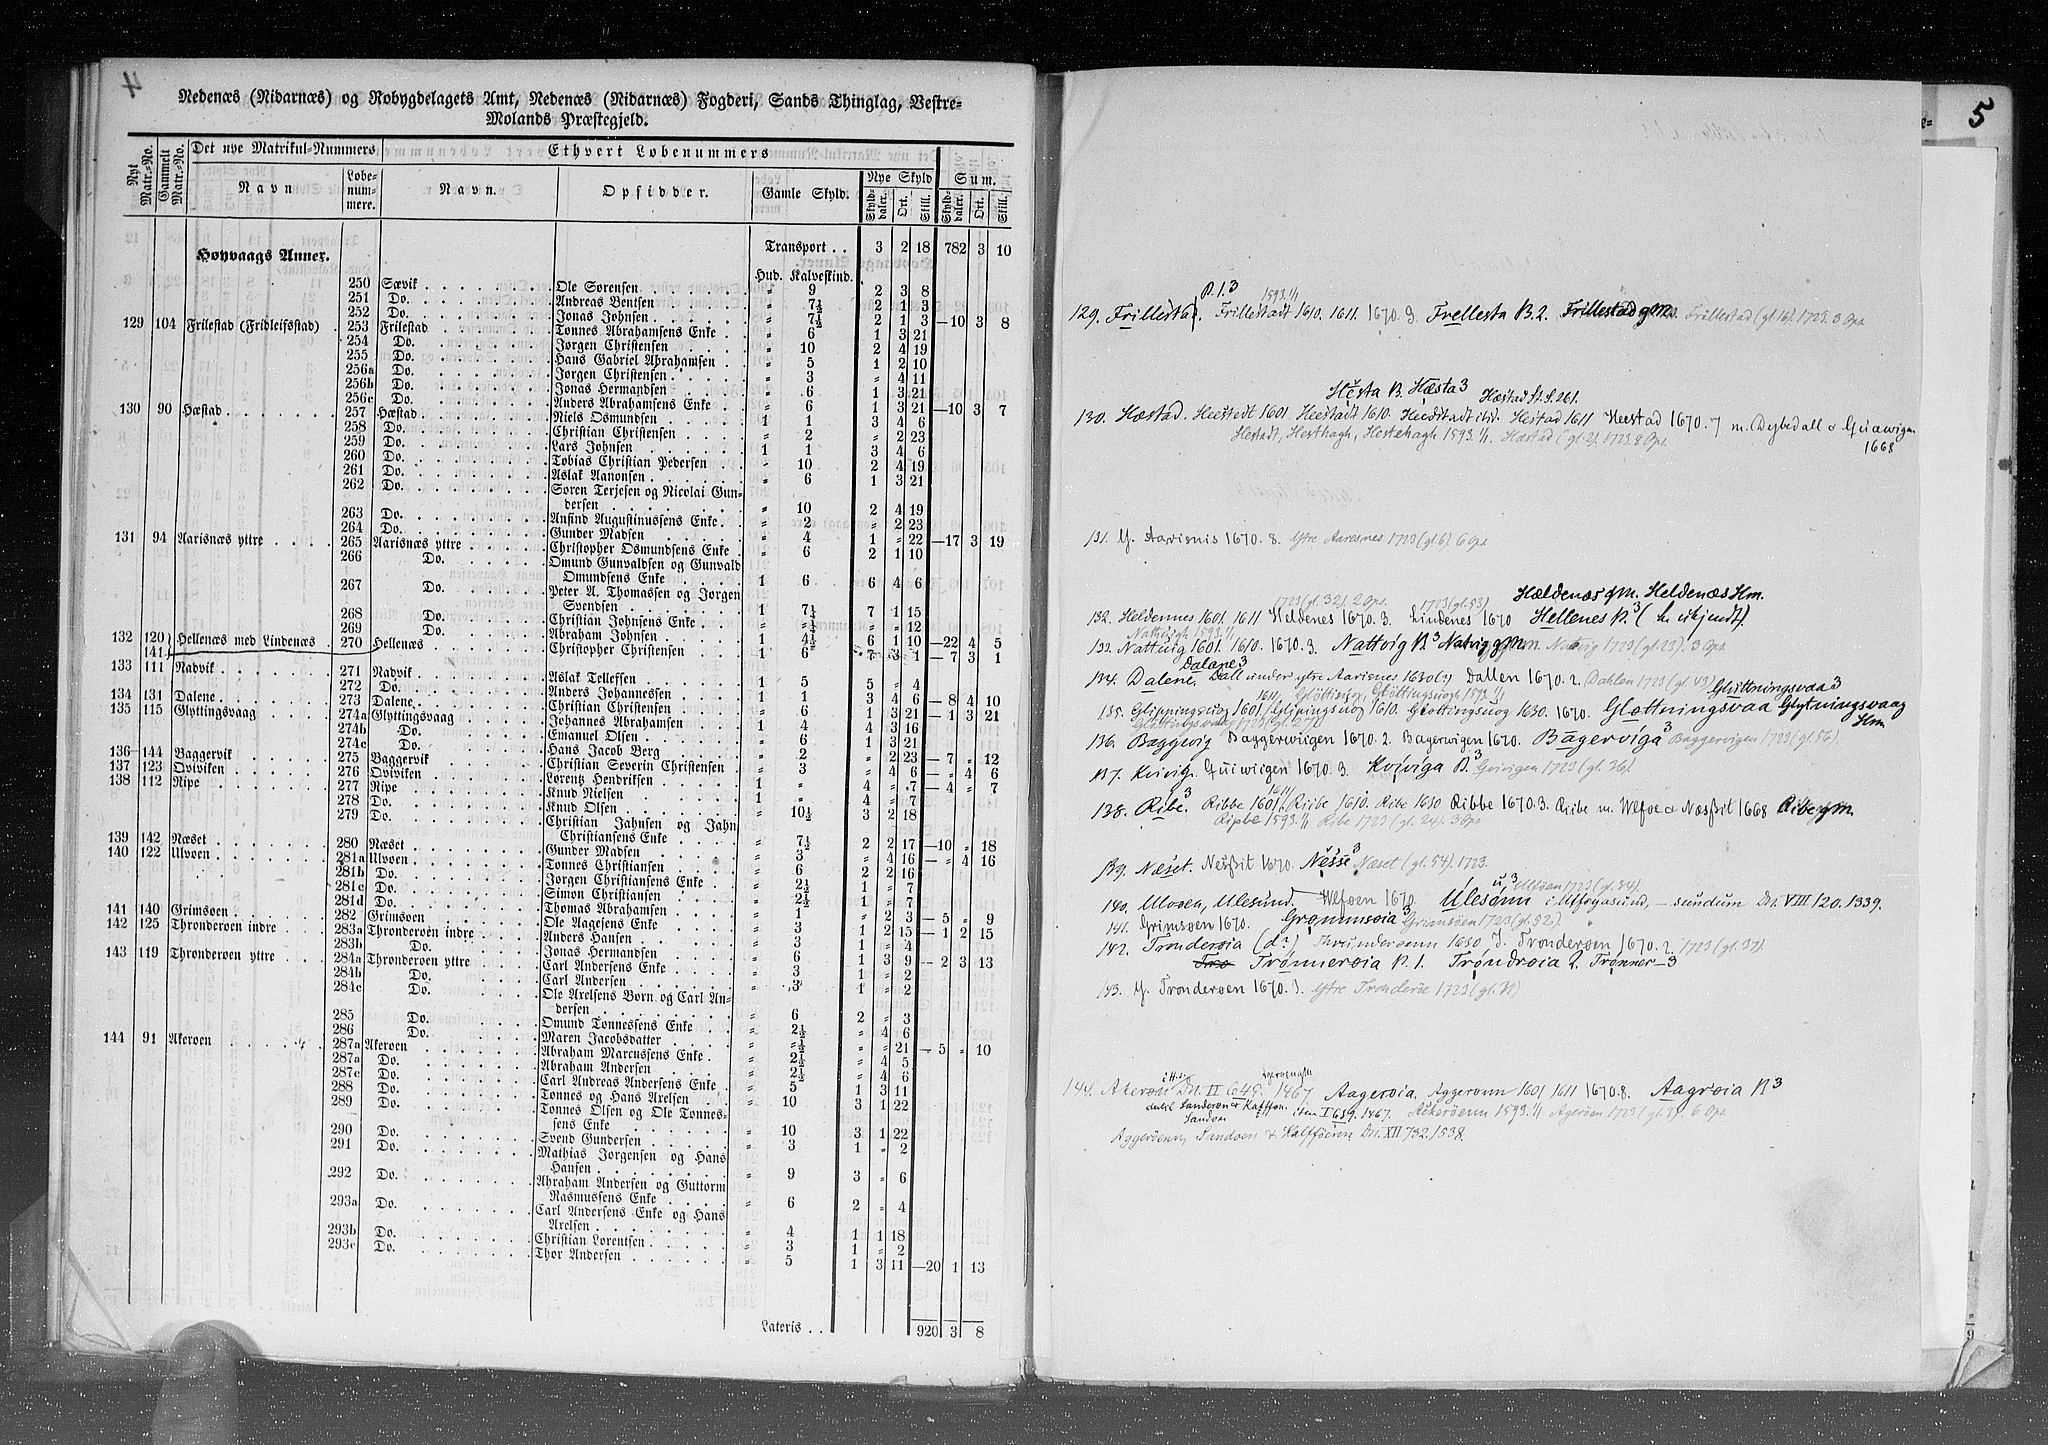 4
Nedenæs (Nidarnæs) og Robygdelagets Amt, Nedenæs (Nidarnæs) Fogderi, Sands Thinglag, Vestre-
Molands Præstegjeld.
Nyt Matr.-No. Gammelt Matr.-No. Det nye Matrikul-Nummers Ethvert Løbenummers
Navn Løbe-nummere. Navn. Opsidder. Gamle Skyld. Nye Skyld Sum.
Skylddaler. Ort. Skill. Skylddaler. Ort. Skill.
Høyvaags Annex. Transport . . 3 2 18 782 3 10
Hud. Kalveskind.
250 Sævik Ole Sørensen " 9 2 3 8
251 Do. Andreas Bentsen " 7½ 2 1 3
252 Do. Jonas Johnsen " 7½ 2 1 3 —10 3 8
129 104 Frilestad (Fridleifsstad) 253 Frilestad Tønnes Abrahamsens Enke " 6 1 3 21
254 Do. Jørgen Christensen " 10 2 4 19
255 Do. Hans Gabriel Abrahamsen " 5 1 2 10
256a Do. Jørgen Christensen " 3 " 4 11
256b Do. Jonas Hermandsen " 6 1 3 21
256c Do. Anders Abrahamsens Enke " 6 1 3 21 —10 3 7
130 90 Hæstad 257 Hæstad Niels Osmundsen 1 1 3 4 6
258 Do. Christian Christensen " 2 " 2 23
259 Do. Lars Johnsen 1 1 3 4 6
260 Do. Tobias Christian Pedersen " 10 2 4 19
261 Do. Aslak Aanonsen " 6 1 3 21
262 Do. Søren Terjesen og Nicolai Gun-
dersen " 10 2 4 19
263 Do. Anfind Augustinussens Enke " 2 " 2 23
264 Do. Gunder Madsen " 4 1 " 22 —17 3 19
131 94 Aarisnæs yttre 265 Aarisnæs yttre Christopher Osmundsens Enke " 6 2 1 10
266 Do. Omund Gunvaldsen og Gunvald
Omundsens Enke 1 6 6 4 6
267 Do. Peter A. Thomassen og Jørgen
Svendsen 1 7¼ 7 1 15
268 Do. Christian Johnsens Enke " ¼ " " 12
269 Do. Abraham Johnsen 1 4½ 6 1 10 —22 4 5
132 120 Hellenæs med Lindenæs 270 Hellenæs Christopher Christensen 1 6 7 3 1 — 7 3 1
141
133 111 Nadvik 271 Nadvik Aslak Tellefsen 1 5 5 " 4
272 Do. Anders Johannesen 1 1 3 4 6 — 8 4 10
134 131 Dalene 273 Dalene Christian Christensen " 6 1 3 21 — 1 3 21
135 115 Glyttingsvaag 274a Glyttingsvaag Johannes Abrahamsen 1 4 4 3 16
274b Do. Emanuel Olsen " 6 1 3 21
274c Do. Hans Jacob Berg " 2 " 2 23 — 7 " 12
136 144 Baggervik 275 Baggervik Christian Severin Christensen " 3 " 4 6 — " 4 6
137 123 Qviviken 276 Qviviken Lorentz Hendriksen 1 " 4 " 7 — 4 " 7
138 112 Ripe 277 Ripe Knud Nielsen 1 " 4 " 7
278 Do. Knud Olsen " 10½ 3 2 18
279 Do. Christian Jahnsen og Jahn
Christiansens Enke " 7½ 2 2 17 —10 " 18
139 142 Næset 280 Næset Gunder Madsen " 3 " 4 16 — " 4 16
140 122 Ulvøen 281a Ulvøen Tønnes Christiansen " 6 2 2 16
281b Do. Jørgen Christiansens Enke " 2½ 1 " 7
281c Do. Simon Christiansen " 2½ 1 " 7
281d Do. Thomas Abrahamsen " 1 " 2 3 — 5 " 9
141 140 Grimsøen 282 Grimsøen Ole Aagesens Enke " 3 1 2 15 — 1 2 15
142 125 Thronderøen indre 283a Thronderøen indre Anders Hansen " 3 1 " 4
283b Do. Jonas Hermandsen " 6 1 3 9 — 2 3 13
143 119 Thronderøen yttre 284a Thronderøen yttre Carl Andersens Enke " 3 1 " 2
284b Do. Carl Andersen " 3 1 " 2
284c Do. Ole Axelsens Børn og Carl An-
dersen " 6 2 " 3
285 Do. Omund Tønnesens Enke " 2½ " 4 6
286 Do. Maren Jacobsdatter " ½ " " 21 — 5 " 10
144 91 Akerøen 287a Akerøen Abraham Marcussens Enke " 2½ " 4 5
287a Do. Abraham Andersen " 2½ " 4 6
287c Do. Carl Andreas Andersens Enke " 5 1 3 11
288 Do. Tønnes og Hans Axelsen " 10 3 1 22
289 Do. Tønnes Olsen og Ole Tønne-
sens Enke " 10 3 1 22
290 Do. Svend Gundersen " 3 1 " 2
291 Do. Mathias Jørgensen og Hans
Hansen " 9 3 " 6
292 Do. Abraham Andersen og Guttorm
Rasmussens Enke " 6 2 " 4
293a Do. Carl Andersens Enke og Hans
Axelsen " 4 1 1 18
293b Do. Christian Lorentsen " 3 1 " 2
293c Do. Thor Andersen " 5 1 3 11 —20 1 13
Lateris . . 920 3 8
5
129. Frillestad. Frillestadt 1610. 1611. 1670. 9. Frellesta R. 2. Frillestad gm. Frillestad (gl. 16). 1723. 3 Ops.
R. 1. 3 1593. 1/1
Hesta R. Hæsta 3 Hæstad St. S. 261.
130. Hæstad. Heestedt 1601. Heestadt 1610. Hestad 1611 Heestad 1670. 7 m. Dybedall o Quiwigen 1668
Hestadt, Hesthagh, Hestehagh 1593. 1/1. Hæstad (gl. 2). 1723. 8 Ops.
131. Y. Aarisnis 1670. 8. Ytre Aaresnes 1723 (gl. 6). 6 Ops.
1723 (gl. 32). 2 Ops. 1723 (gl. 53) Hældenæs gm. Heldenæs Hm.
132. Heldennes 1601. 1611 Heldenes 1670. 3. Lindenes 1670 Hellenes R. 3 ( ukjendt).
Nathuigh 1593. 1/1
133. Nattuig 1601. 1610. 1670. 3. Nattvig R. 3 Natvig gm. Natvig 1723 (gl. 23). 3 Ops.
Dalane 3
134. Dalene. Dall under ytre Aarisnes 1630 (?) Dallen 1670. 2. Dahlen 1723 (gl. 43)
1611 Gløttingsvaa 3
135. Glippingsvig 1601. Glipingsuog 1610. Gløttingsuog 1630. 1670. Gløttningsvaa Glytningsvaag Hm
136. Baggwig Baggerwiigen 1670. 2. Bagerwigen 1670. Bagerviga 3 Baggervigen 1723 (gl. 56).
137. Kvivig. Quiwiigen 1670. 3. Kviviga R. 3 Qvivigen 1723 (gl. 36).
138. Ribe. 3 Ribbe 1601. 1611 Riibe 1610. Ribe 1630 Ribbe 1670. 3. Riibe m. Wlføe o Næssit 1668 Ribe gm.
Ripbe 1593. 1/1 Ribe 1723 (gl. 24). 3 Ops
139. Næset. Nessit 1670. Nesse 3 Næset (gl. 54). 1723.
u, 3 Ulføen 1723 (gl. 34)
140. Ulvøen, Ulesund. Wlføen 1670. Ulesønn i Ulføyasund, — sundum Dn. VIII 120. 1339.
141. Grimsøen 1670. Grømmsøia 3 Grimsøen 1723 (gl. 52).
142. Trønderøia (d?) Thrunderøenn 1630 J. Tronderøen 1670. 2. 1723 (gl. 37).
Trønnerøia R. 1. Trøndrøia 2. Trønner— 3
143. Y. Tronderøen 1670. 3. Ytre Tronderøe 1723 (gl. 31)
144. Akerøn Dn. II 645. 1467 Aagerøia, Aggerønn 1601 1611 1670. 8. Aagrøia R 3
item I 639. 1467. Ackerøenn 1593. 1/1 Agerøen 1723 (gl. 3). 6 Ops.
Aggerøenn, Sandøen & Kalfføenn Dn. XII 732. 1538.